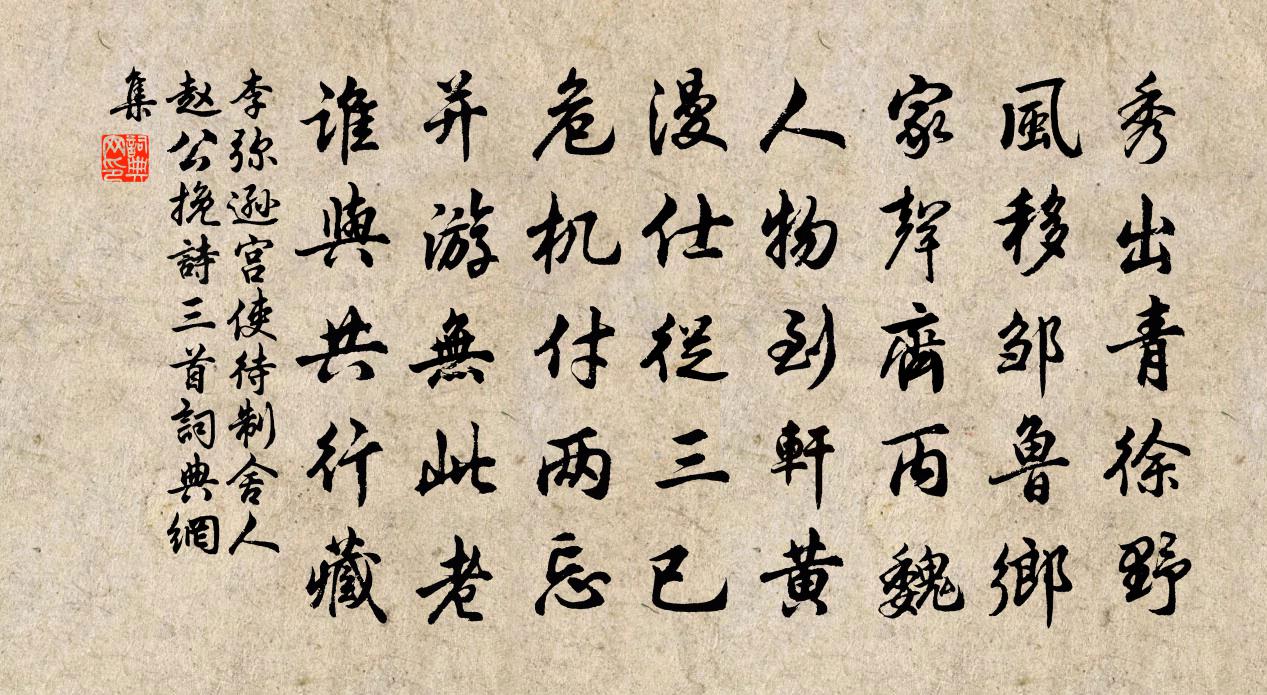 秀出青徐野
風移邹魯鄉
家聲齊丙魏
人物到軒黄
漫仕從三已
危机付两忘
并游無此老
誰與共行藏
李弥遜宫使待制舍人
赵公挽詩三首詞典網
集
詞典網印